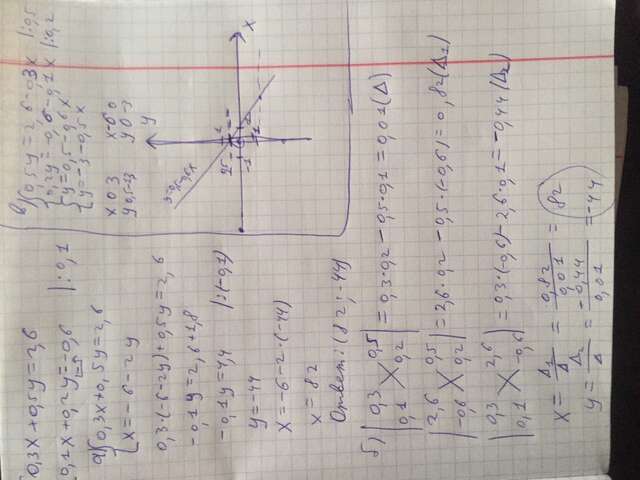 0,3x + 0,5y = 2,6
0,1x + 0,2y = -0,6 |:0,1
а) 0,3x + 0,5y = 2,6
x = -6 - 2y
0,3·(-6-2y) + 0,5y = 2,6
-0,1y = 2,6 + 1,8
-0,1y = 4,4 |:(-0,1)
y = -44
x = -6 - 2·(-44)
x = 82
Ответ: (82; -44)
в) 0,5y = 2,6 - 0,3x |:0,5
0,2y = -0,6 - 0,1x |:0,2
y = 0,5 - 0,6x
y = -3 - 0,5x
x 0 3
y 0,5 -1,3
x -6 0
y 0 -3
y
y=0,5-0,6x
1
-1
1
-1
x
б) |0,3 0,5|
|0,1 0,2| = 0,3·0,2 - 0,5·0,1 = 0,01 (Δ)
|2,6 0,5|
|-0,6 0,2| = 2,6·0,2 - 0,5·(-0,6) = 0,82 (Δ₁)
|0,3 2,6|
|0,1 -0,6| = 0,3·(-0,6) - 2,6·0,1 = -0,44 (Δ₂)
x = Δ₁/Δ = 0,82/0,01 = 82
y = Δ₂/Δ = -0,44/0,01 = -44